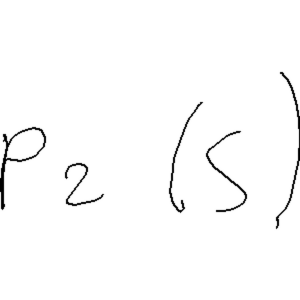 P2 (S)